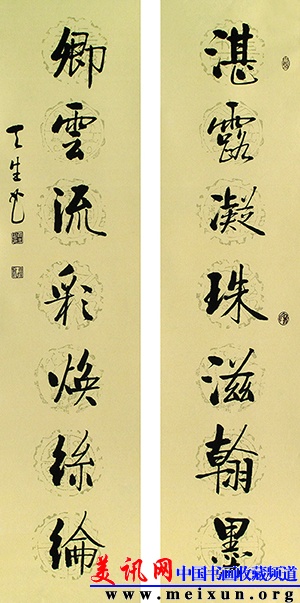 湛露凝珠滋翰墨
卿雲流彩焕絲綸
美讯网 中国书画收藏频道
www.meixun.org